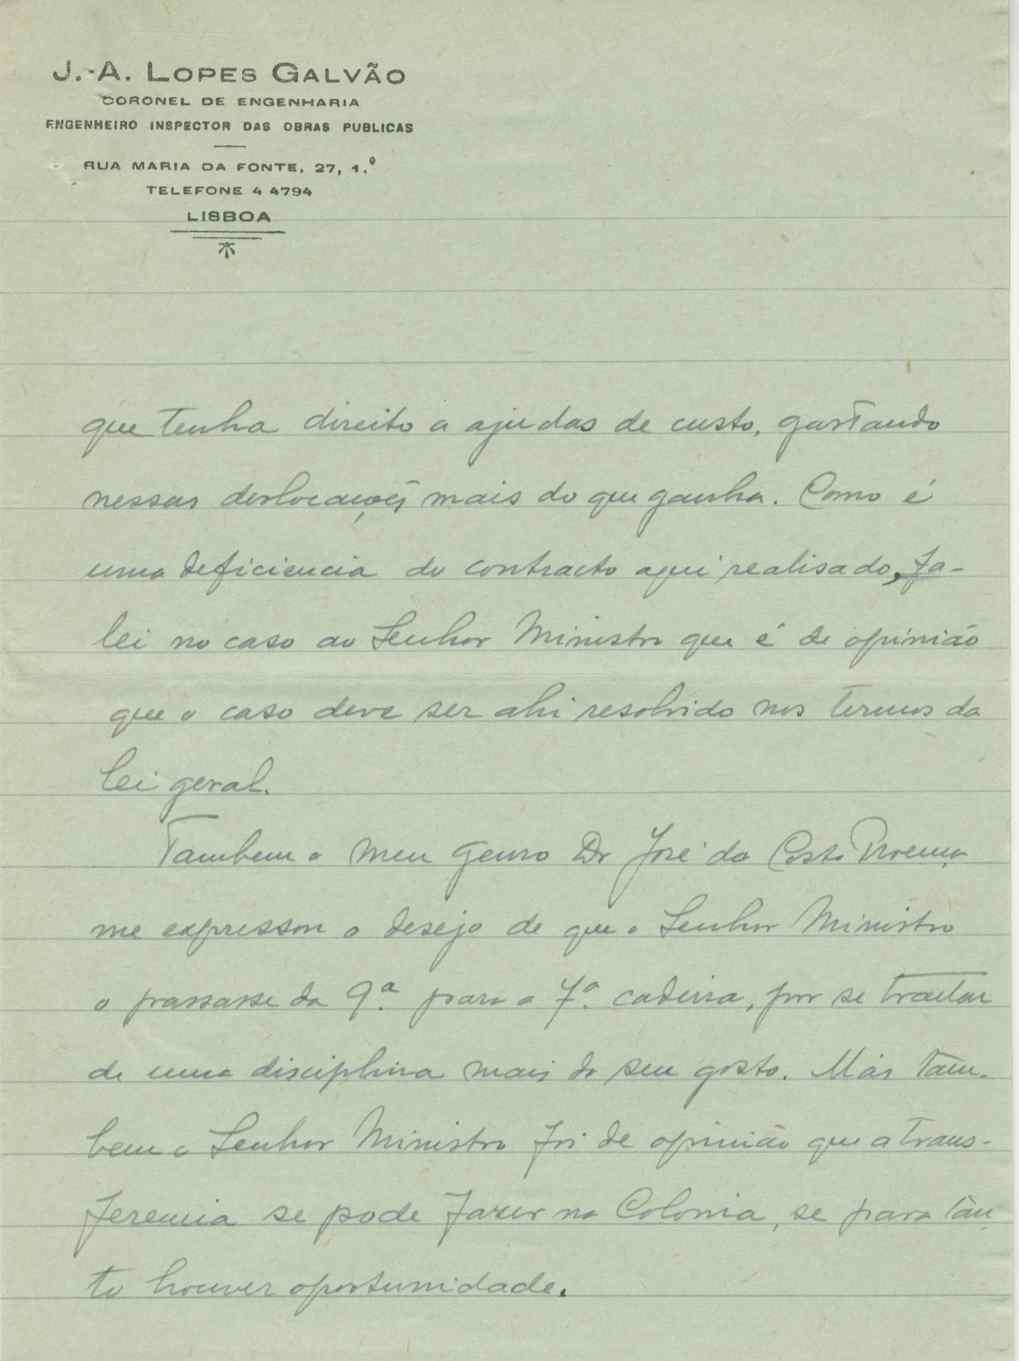 J.-A. LOPES GALVÃO
CORONEL DE ENGENHARIA
ENGENHEIRO INSPECTOR DAS OBRAS PUBLICAS
RUA MARIA DA FONTE, 27, 1.º
TELEFONE 4 4794
LISBOA
que tenha direito a ajudas de custo, gastando
nessas deslocações mais do que ganha. Como é
uma deficiencia do contracto aqui realisado, fa-
lei no caso ao Senhor Ministro que é de opinião
que o caso deve ser ahi resolvido nos termos da
lei geral.
Tambem o meu genro Dr José da Costa Proença
me expressou o desejo de que o Senhor Ministro
o passasse da 9ª. para a 7ª. cadeira, por se tractar
de uma disciplina mais do seu gosto. Mas tam-
bem o Senhor Ministro foi de opinião que a trans-
ferencia se pode fazer na Colonia, se para tan-
to houver oportunidade.